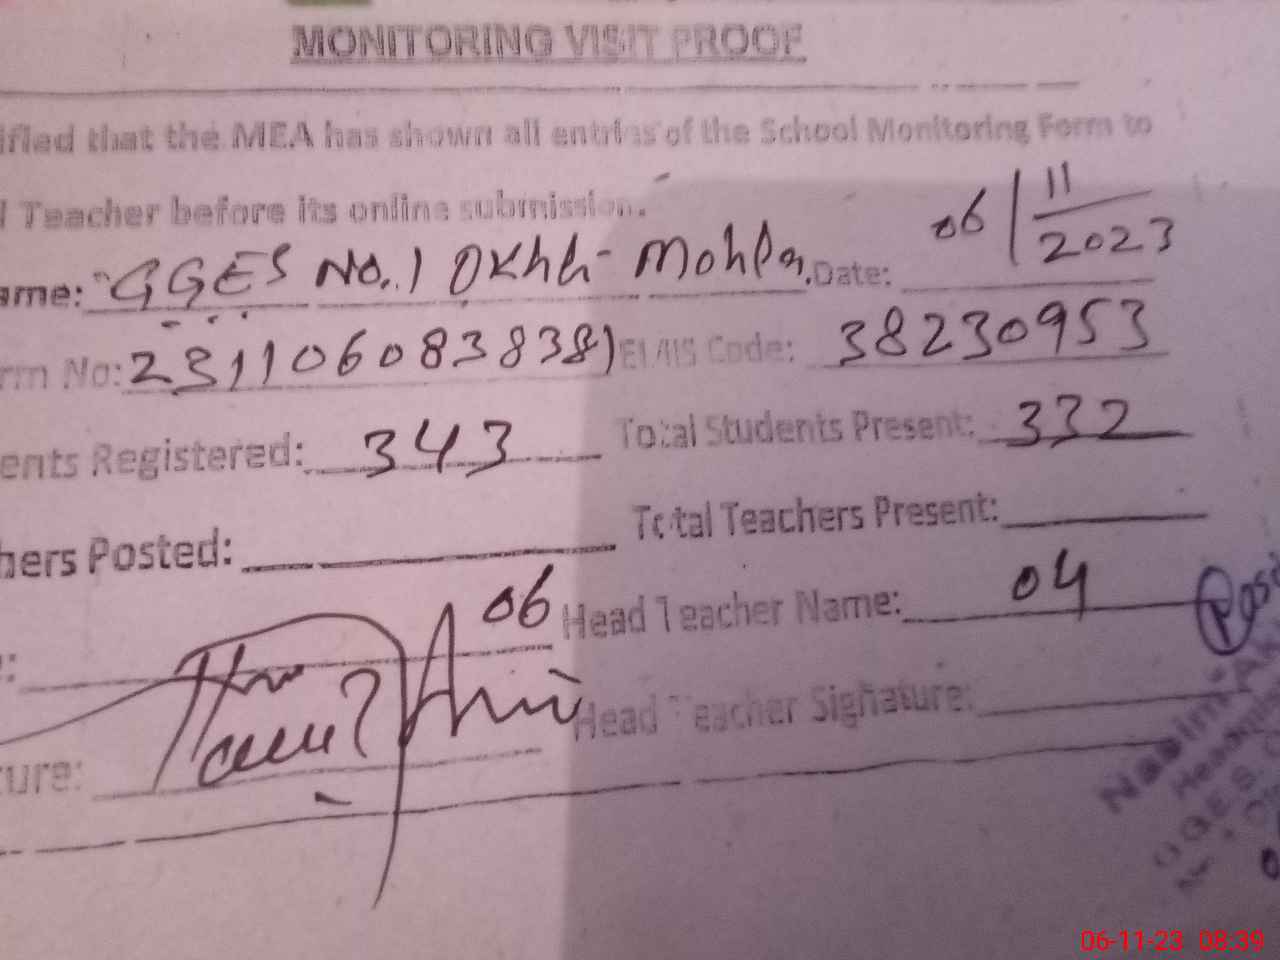 MONITORING VISIT PROOF
ified that the MEA has shown all entries of the School Monitoring Form to
Teacher before its online submission.
ame: GGES No. 1 Okhli Mohla. Date: 06/11/2023
rm No: 231106083838) EMIS Code: 38230953
ents Registered: 343 Total Students Present: 332
hers Posted: Total Teachers Present:
06 Head Teacher Name: 04
ture: Head Teacher Signature:
Nasim
GGES
06-11-23 08:39